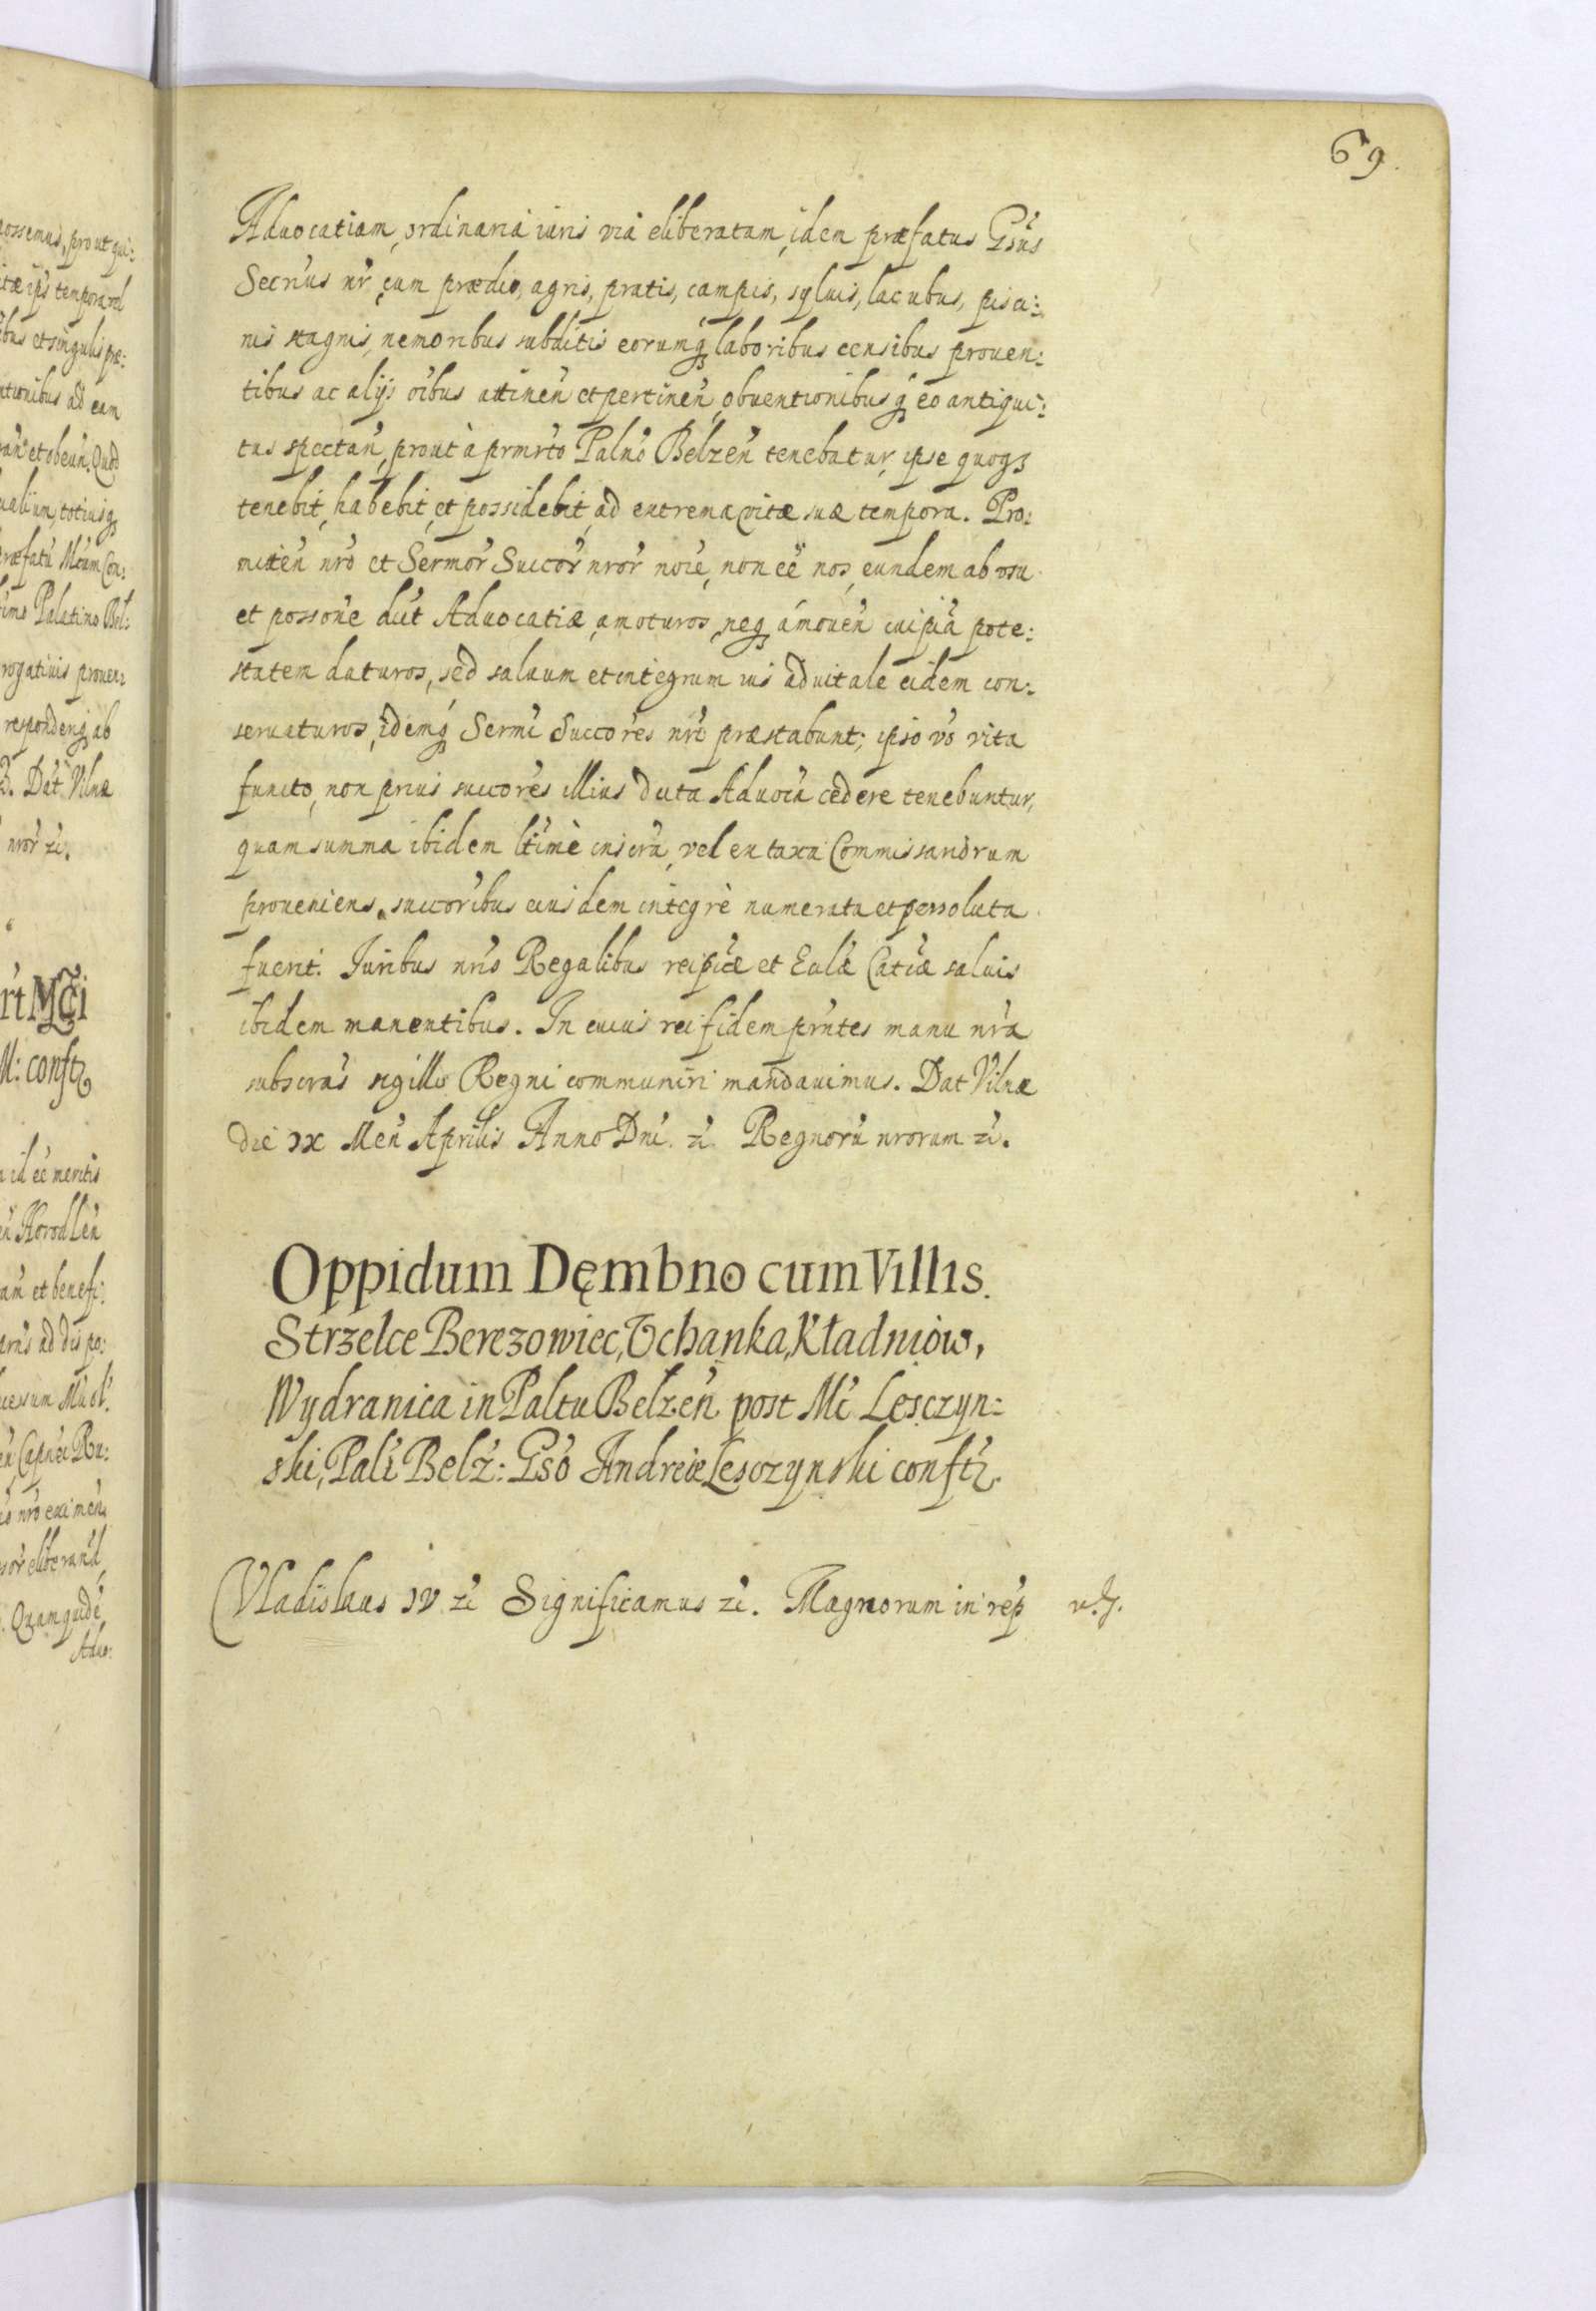 69
Aduocatiam, ordinariâ iuris viâ eliberatam, idem præfatus Gsũs
Secrĩus nr̃, cum prædio, agris, pratis, campis, syluis, lacubus, pisci:
nis stagnis, nemoribus subditis eorumq́ laboribus censibus prouen:
tibus ac alijs oĩbus attineñ et pertineñ, obuentionibusq́ eo antiqui:
tus spectañ, prout à prmr̃to Palño Belzeñ tenebatur, ipse quoq3
tenebit, habebit, et possidebit, ad extrema vitæ suæ tempora. Pro:
mitteñ nr̃o et Sermor̃ Succor̃ nror̃ noĩe, non eẽ nos, eundem ab usu
et possoñe dĩct Aduocatiæ, amoturos, neq́ amoueñ cuipiã pote:
statem daturos, sed saluum et integrum ius aduitale eidem con:
seruaturos, idemq́ Sermĩ Succor̃es nr̃i præstabunt; ipso vo͂ vita
functo, non prius succor̃es illius dicta Aduocĩa cedere tenebuntur,
quam summa ibidem ltĩmè inscrã, vel ex taxa Commissariorum
proueniens, succoribus eiusdem integrè numerata et persoluta
fuerit. Iuribus nr̃is Regalibus reipĩcæ et Eclæ̃ Catĩæ saluis
ibidem manentibus. In cuius rei fidem prñtes manu nr̃a
subscras̃ sigillo Regni communiri mandauimus. Dat Vilnæ
die IX Meñ Aprilis Anno Dnĩ zc̃. Regnorũ nrorum zc̃.
Oppidum Dęmbno cum Villis.
Strzelce Berezowiec, Uchanka, Kładniow,
Wydranica in Paltu Belzeñ post Mc̃ Lesczyn:
ski, Pali Belz̃: Gsõ Andreæ Lesczynski confr̃
Vladislaus IV zc̃ Significamus zc̃. Magnorum in rep̃ v. J.